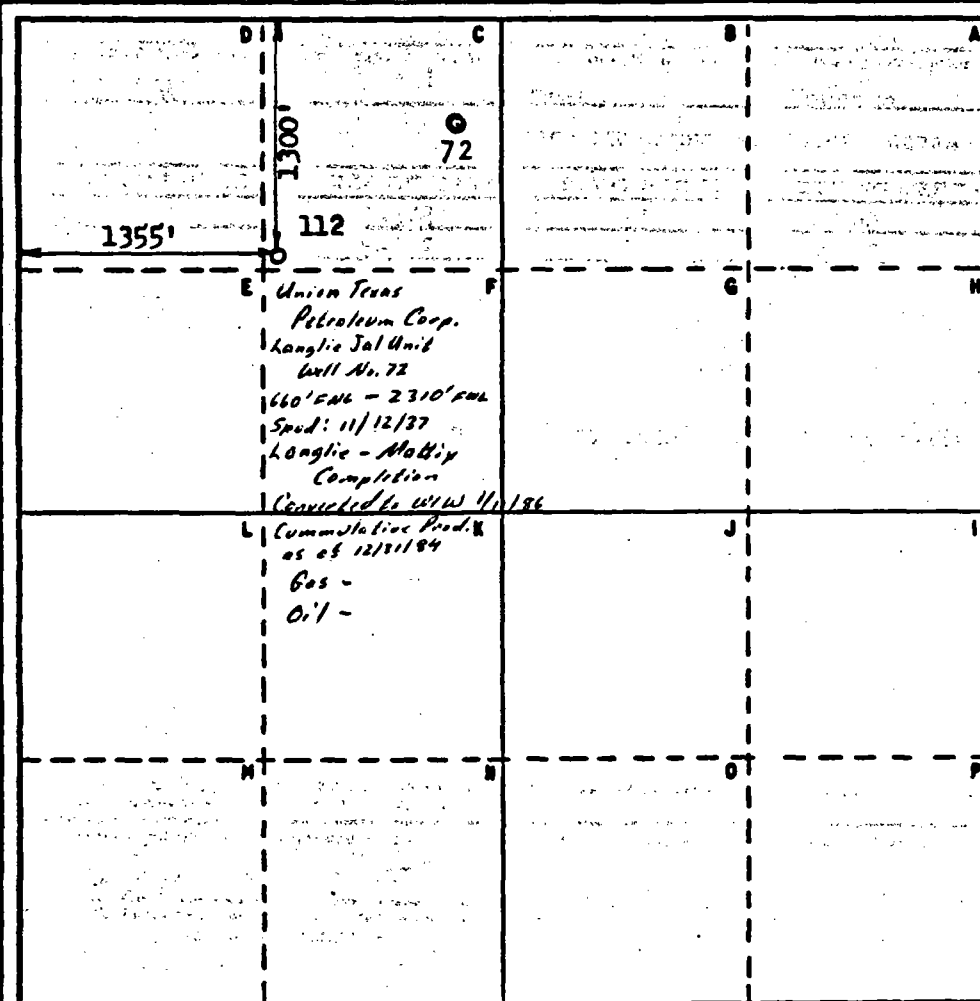 D C B A
1300'
72
1355' 112
E F G H
Union Texas
Petroleum Corp.
Langlie Jal Unit
Well No. 72
660' FNL - 2310' FWL
Spud: 11/12/37
Langlie - Mattix
Completion
Converted to WIW 1/11/86
L K J I
Cummulative Prod.
as of 12/31/84
Gas -
Oil -
M N O P